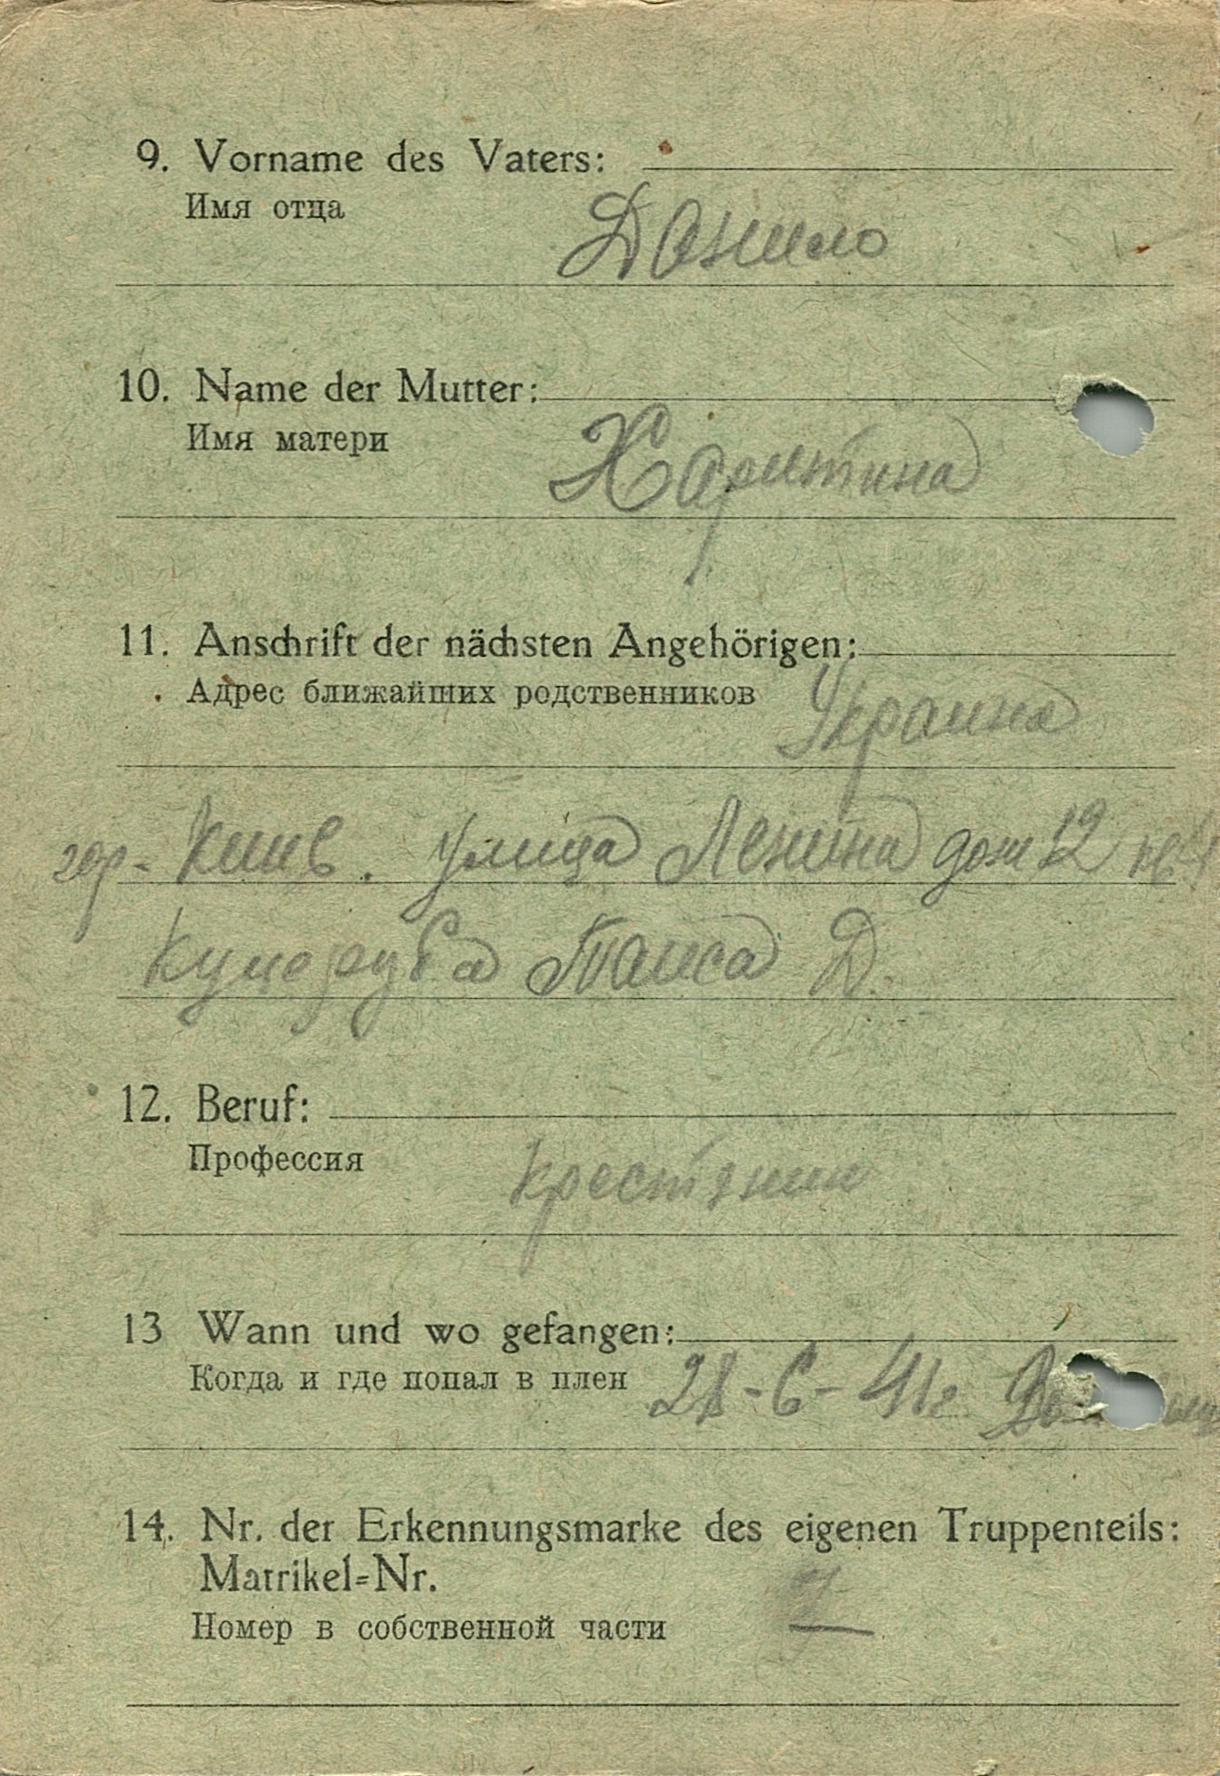 9. Vorname des Vaters:
Имя отца
Данило
10. Name der Mutter:
Имя матери
Харитина
11. Anschrift der nächsten Angehörigen:
Адрес ближайших родственников Украина
гор. Киив. улица Ленина дом 12 кв
Таиса Д.
12. Beruf:
Профессия
крестянин
13 Wann und wo gefangen:
Когда и где попал в плен 28-6-41г
14. Nr. der Erkennungsmarke des eigenen Truppenteils:
Matrikel-Nr.
Номер в собственной части